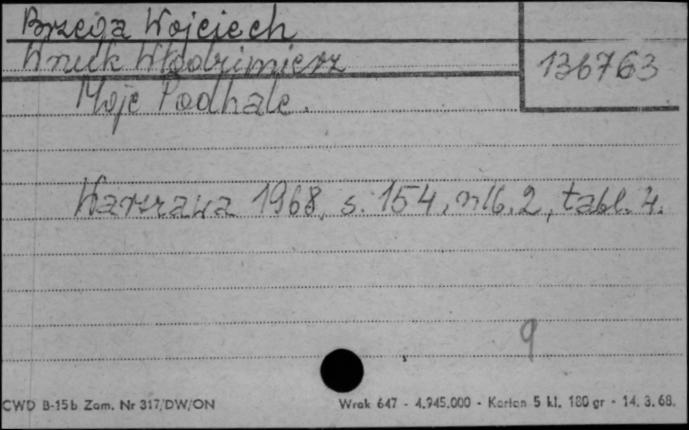 Brzega Wojciech
Wnuk Włodzimierz
136763
Moje Podhale.
Warszawa 1968, s. 154, nlb. 2, tabl. 4.
9
CWD B-15b Zam. Nr 317/DW/ON
Wrak 647 - 4.945.000 - Karton 5 kl. 180 gr - 14. 3. 68.